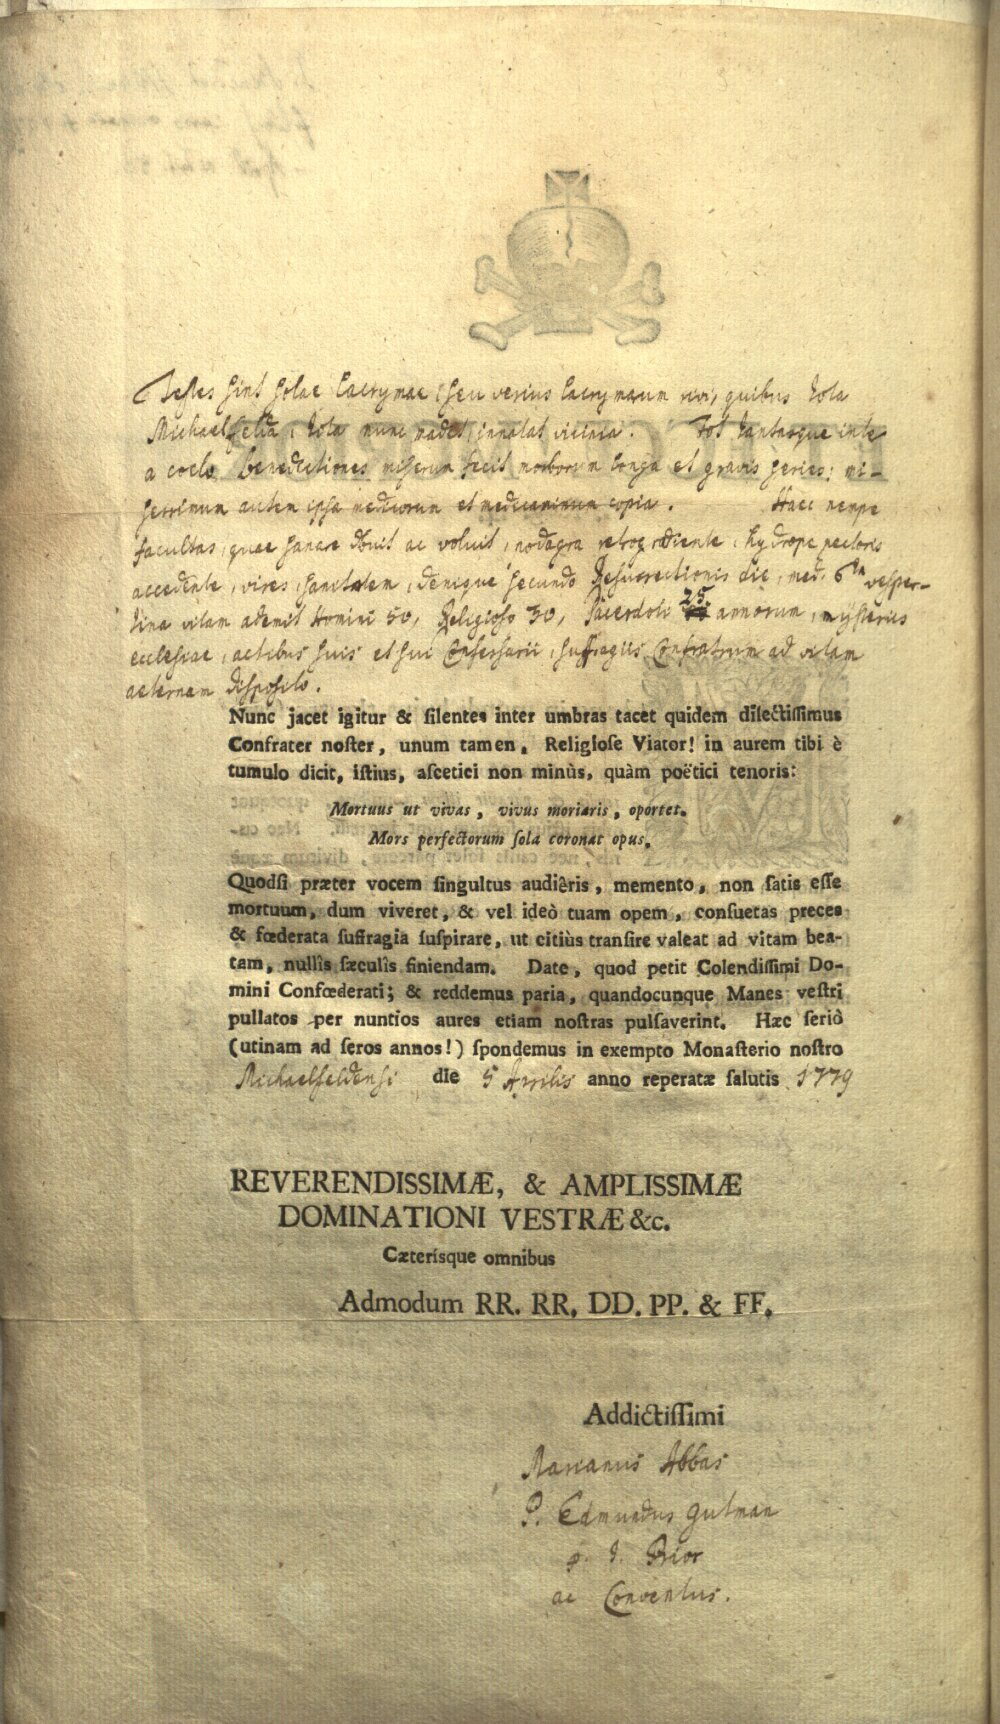 Testes sint solae lacrymae, seu verius lacrymarum rivi, quibus tota
Michaelfelda, tota nunc madet, innatat vicinia. Tot tantasque inte
a coelo benedictiones miserum fecit morborum longa et gravis series: mi-
serrimum autem ipsa medicorum et medicaminum copia. Haec nempe
facultas, quae sanare debuit ac voluit, podagra retrogrediente, hydrope pectoris
accedente, vires, sanitatem, denique secundo Resurrectionis die, med. 6ta vesper-
tina vitam ademit Homini 50, Religioso 30, Sacerdoti 25 annorum, mysteriis
ecclesiae, actibus suis et sui Confessarii, suffragiis Confratrum ad vitam
aeternam disposito.
Nunc jacet igitur & silentes inter umbras tacet quidem dilectissimus
Confrater noster, unum tamen, Religiose Viator! in aurem tibi è
tumulo dicit, istius, ascetici non minùs, quàm poëtici tenoris:
Mortuus ut vivas, vivus moriaris, oportet.
Mors perfectorum sola coronat opus.
Quodsi præter vocem singultus audiêris, memento, non satis esse
mortuum, dum viveret, & vel ideò tuam opem, consuetas preces
& fœderata suffragia suspirare, ut citiùs transire valeat ad vitam bea-
tam, nullis sæculis finiendam. Date, quod petit Colendissimi Do-
mini Confœderati; & reddemus paria, quandocunque Manes vestri
pullatos per nuntios aures etiam nostras pulsaverint. Hæc seriò
(utinam ad seros annos!) spondemus in exempto Monasterio nostro
Michaelfeldensi die 5 Aprilis anno reperatæ salutis 1779
REVERENDISSIMÆ, & AMPLISSIMÆ
DOMINATIONI VESTRÆ &c.
Cæterísque omnibus
Admodum RR. RR. DD. PP. & FF.
Addictissimi
Marianus Abbas
P. Edmundus Gutman
p. t. Prior
ac Conventus.